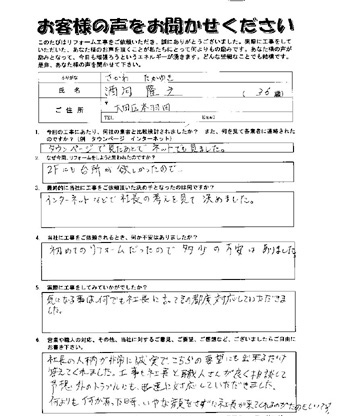 お客様の声をお聞かせください
このたびはリフォーム工事をご依頼いただき、誠にありがとうございました。実際に工事をして
いただいた、あなた様のお声を聞くことが私たちにとって何よりもの励みです。あなた様の声が
励みとなって、今日も頑張ろうというエネルギーが湧きます。どんな些細なことでも結構です。
是非、あなた様の声を聞かせて下さい。
ふりがな
氏名
(36歳)
ご住所
大田区本羽田
TEL
1. 今回の工事にあたり、何社の業者と比較検討されましたか？ また、何を見て各業者に連絡された
のですか？(例 タウンページ インターネット)
タウンページで見たあとで ネットでも見ました。
2. なぜ今回、リフォームをしようと思われたのですか？
2Fにも台所が欲しかったので
3. 最終的に当社に工事をご依頼頂いた決め手となったのは何ですか？
インターネットなどで社長の考えを見て決めました。
4. 当社に工事をご依頼されるとき、何か不安はありましたか？
初めてのリフォームだったので 多少の不安はありました
5. 実際に工事をしてみていかがでしたか？
気になる事は何でも社長に言って その都度対応していただきま
した。
6. 営業や職人の対応、その他、当社に対するご意見、ご要望、ご感想など、ございましたらご自由に
お書き下さい。
社長の人柄が非常に誠実でこちらの要望にも出来るだけ
答えてくれました。工事も社長と職人さんが良く相談して
予想外のトラブルにも 迅速に対応していただきました。
何よりも何かあった時、いやな顔をせずに社長が来てくれるのが